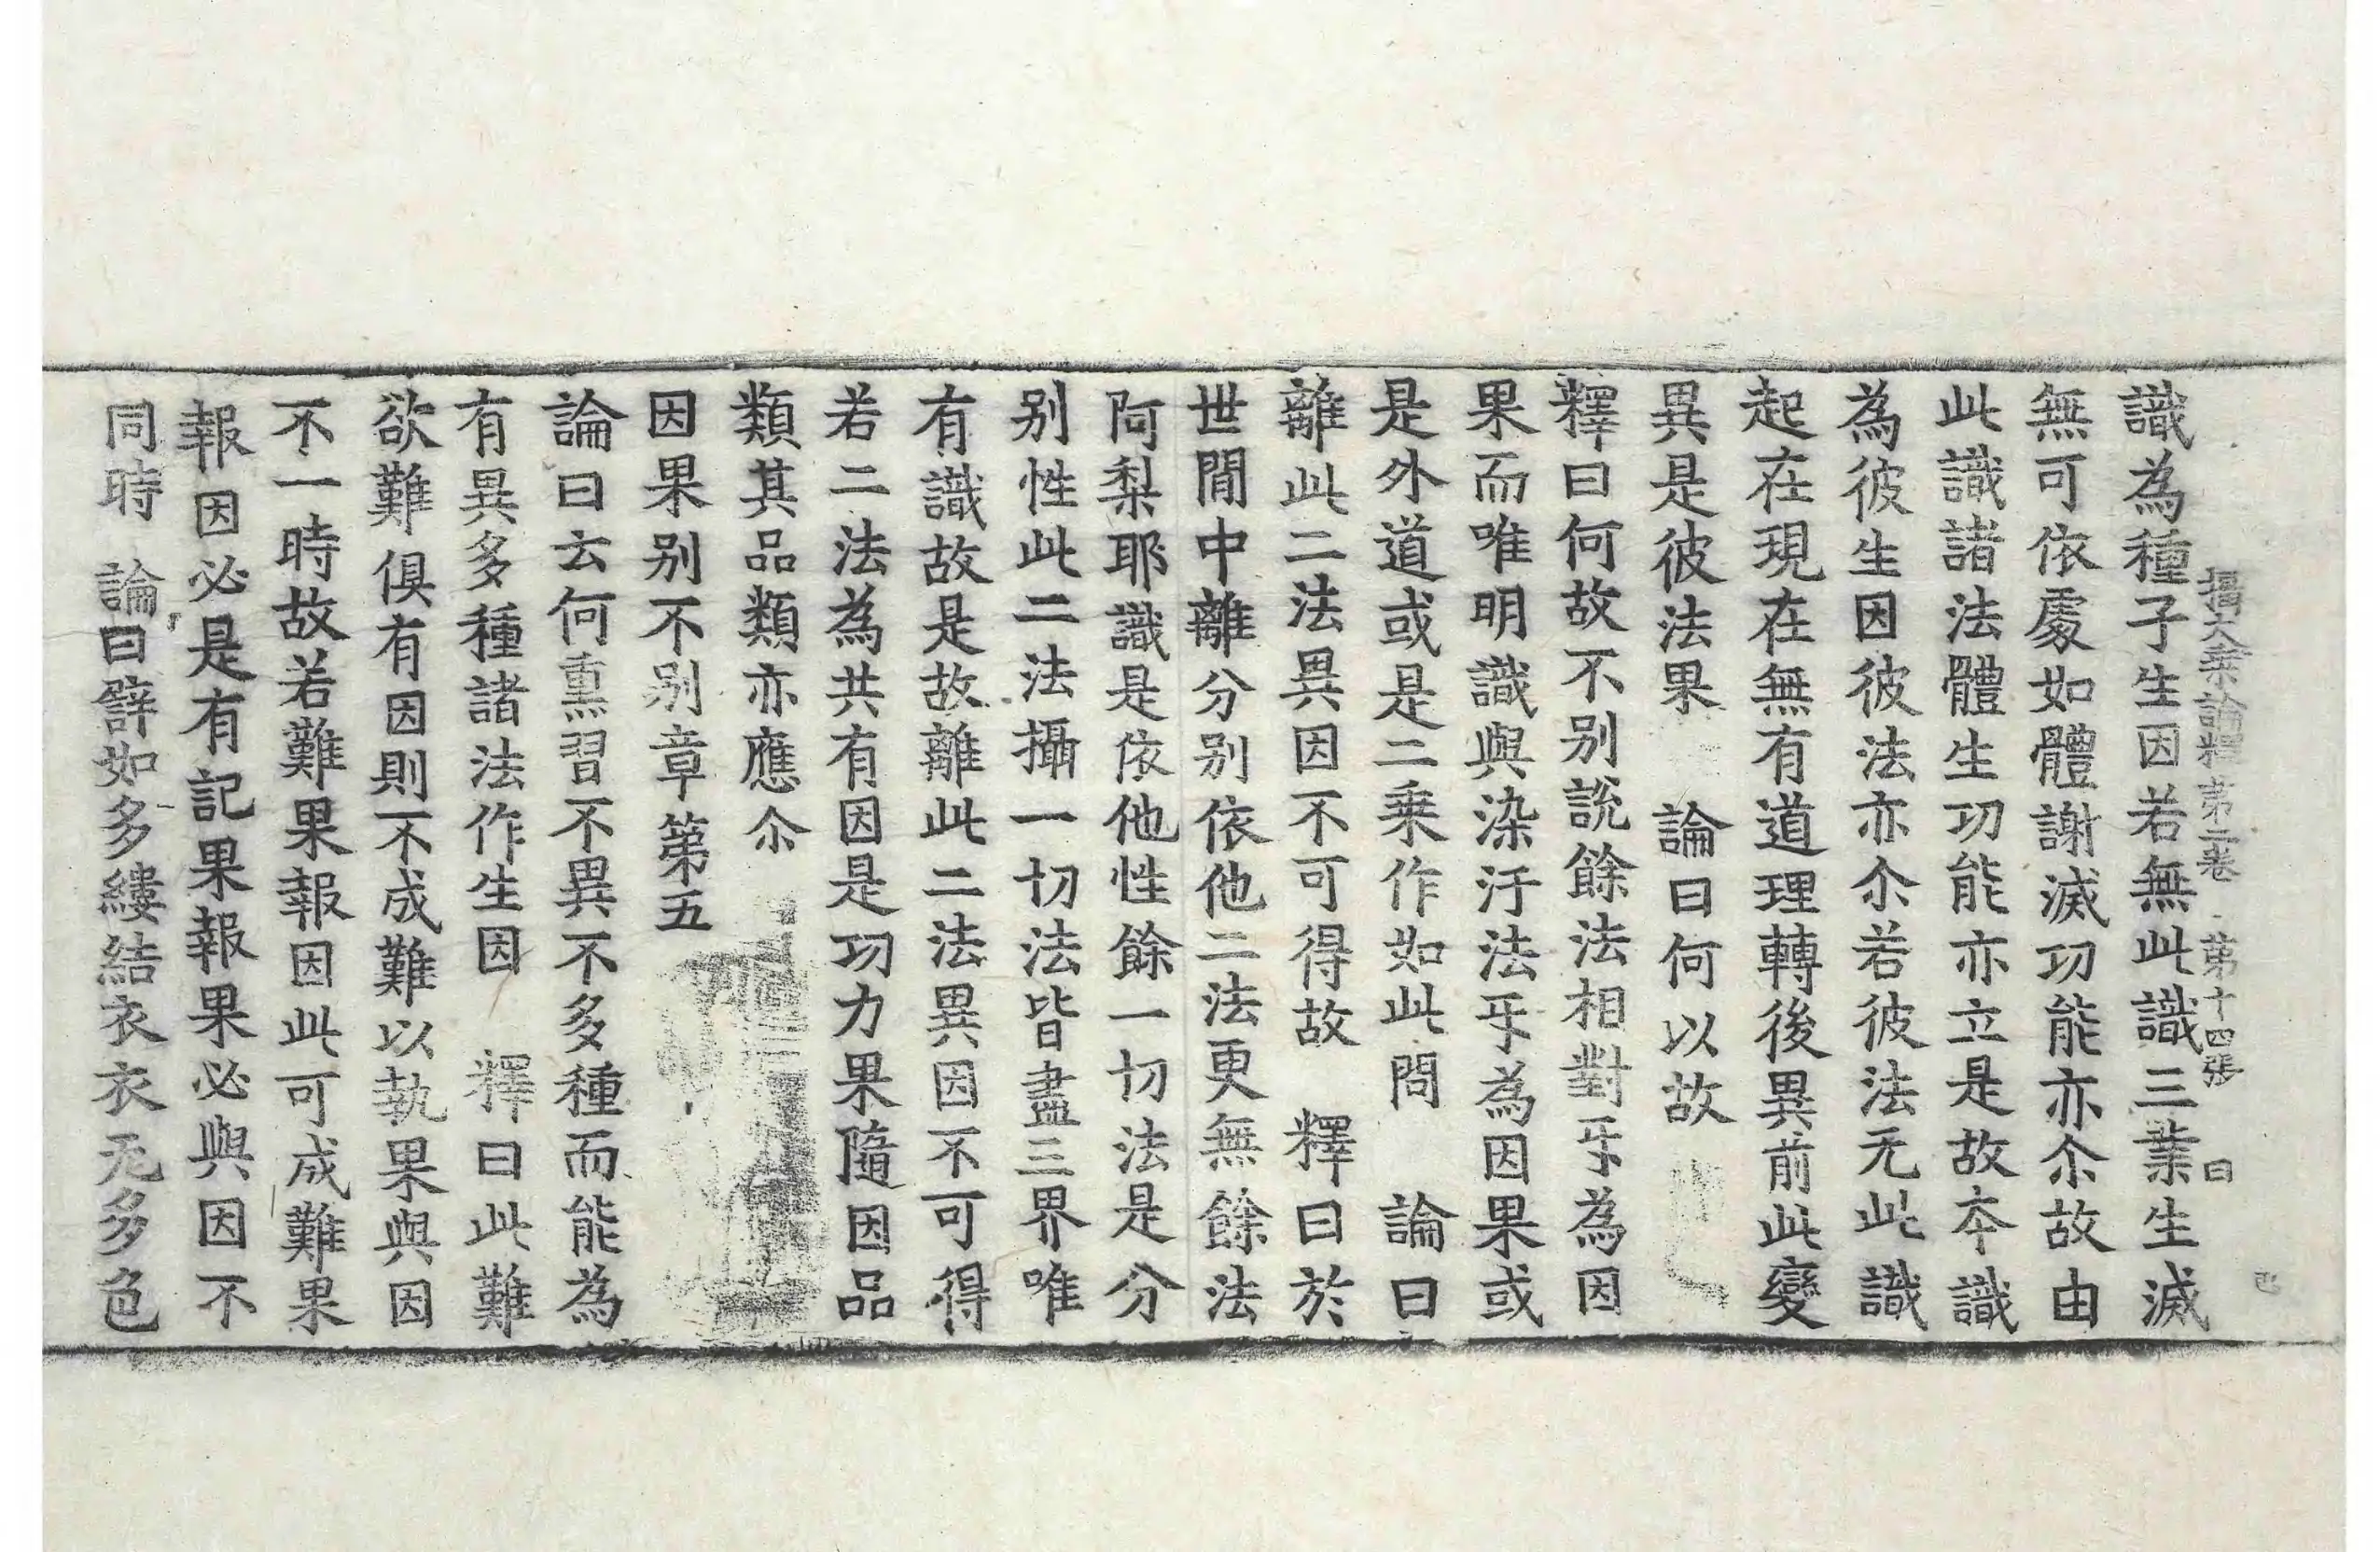 攝大乘論釋第二卷 第十四張 曰
識為種子生因若無此識三業生滅
無可依處如體謝滅功能亦尒故由
此識諸法體生功能亦立是故夲識
為彼生因彼法亦尒若彼法无此識
起在現在無有道理轉後異前此變
異是彼法果 論曰何以故
釋曰何故不别說餘法相對㸦為因
果而唯明識與染汙法㸦為因果或
是外道或是二乘作如此問 論曰
離此二法異因不可得故 釋曰於
世閒中離分别依他二法更無餘法
阿梨耶識是依他性餘一切法是分
别性此二法攝一切法皆盡三界唯
有識故是故離此二法異因不可得
若二法為共有因是功力果隨因品
類其品類亦應尒
因果别不别章第五
論曰云何熏習不異不多種而能為
有異多種諸法作生因 釋曰此難
欲難俱有因則不成難以執果與因
不一時故若難果報因此可成難果
報因必是有記果報果必與因不
同時 論曰譬如多縷結衣衣无多色